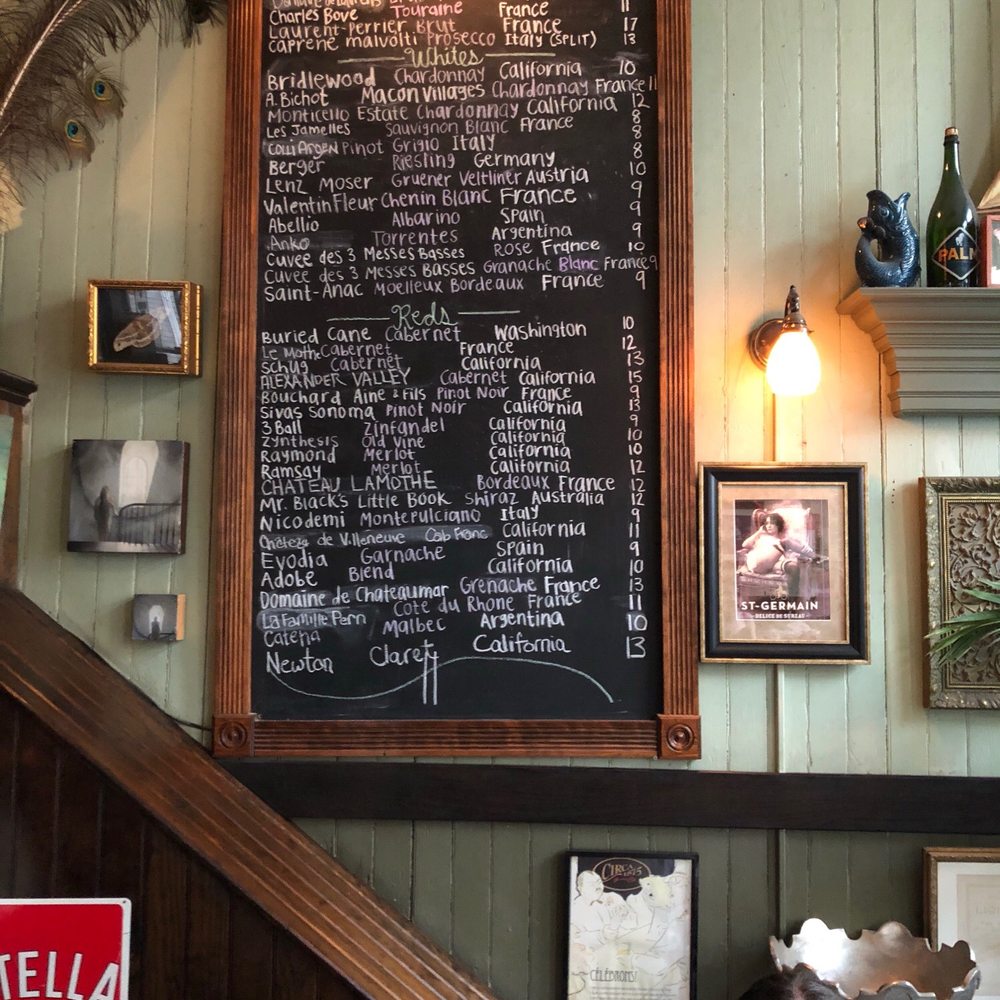 Charles Bove Touraine France 11
Laurent-Perrier Brut France 17
Caprene malvolti Prosecco Italy (SPLIT) 13
Whites
Bridlewood Chardonnay California 10
A. Bichot Macon Villages Chardonnay France 11
Monticello Estate Chardonnay California 12
Les Jamelles Sauvignon Blanc France 8
Colli Argen Pinot Grigio Italy 8
Berger Riesling Germany 8
Lenz Moser Gruener Veltliner Austria 10
Valentin Fleur Chenin Blanc France 9
Abellio Albarino Spain 9
Anko Torrentes Argentina 9
Cuvée des 3 Messes Basses Rose France 10
Cuvee des 3 Messes Basses Granache Blanc France 9
Saint-Anac Moelleux Bordeaux France 9
Reds
Buried Cane Cabernet Washington 10
Le Mothe Cabernet France 12
Schug Cabernet California 13
ALEXANDER VALLEY Cabernet California 15
Bouchard Aine & Fils Pinot Noir France 9
Sivas Sonoma Pinot Noir California 13
3 Ball Zinfandel California 9
Zynthesis Old Vine California 10
Raymond Merlot California 10
Ramsay Merlot California 12
CHATEAU LAMOTHE Bordeaux France 12
Mr. Black's Little Book Shiraz Australia 12
Nicodemi Montepulciano Italy 9
Château de Villeneuve Cab Franc California 11
Evodia Garnache Spain 9
Adobe Blend California 10
Domaine de Chateaumar Grenache France 13
La Famille Perrn Cote du Rhone France 11
Catena Malbec Argentina 10
Newton Claret California 13
PALM
ST-GERMAIN
DELICE DE SUREAU
CIRCA
1875
CÉLÉBRONS!
TELLA